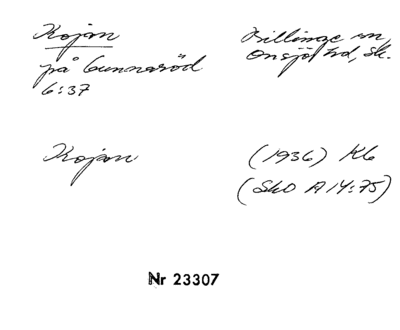 Kojan
på Gunnaröd
6:37
Billinge sn,
Onsjö hd, Sk.
Kojan
(1936) Kb
(SkO A 14:75)
Nr 23307